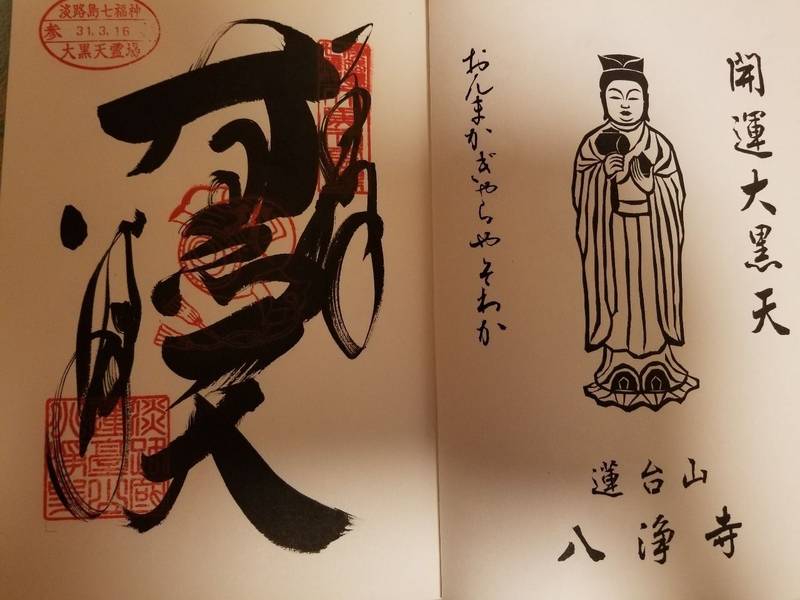 開運大黒天
おんまかぎゃらやそわか
蓮台山
八浄寺
淡路島七福神
参 31.3.16
大黒天霊場
大黒天
八浄寺